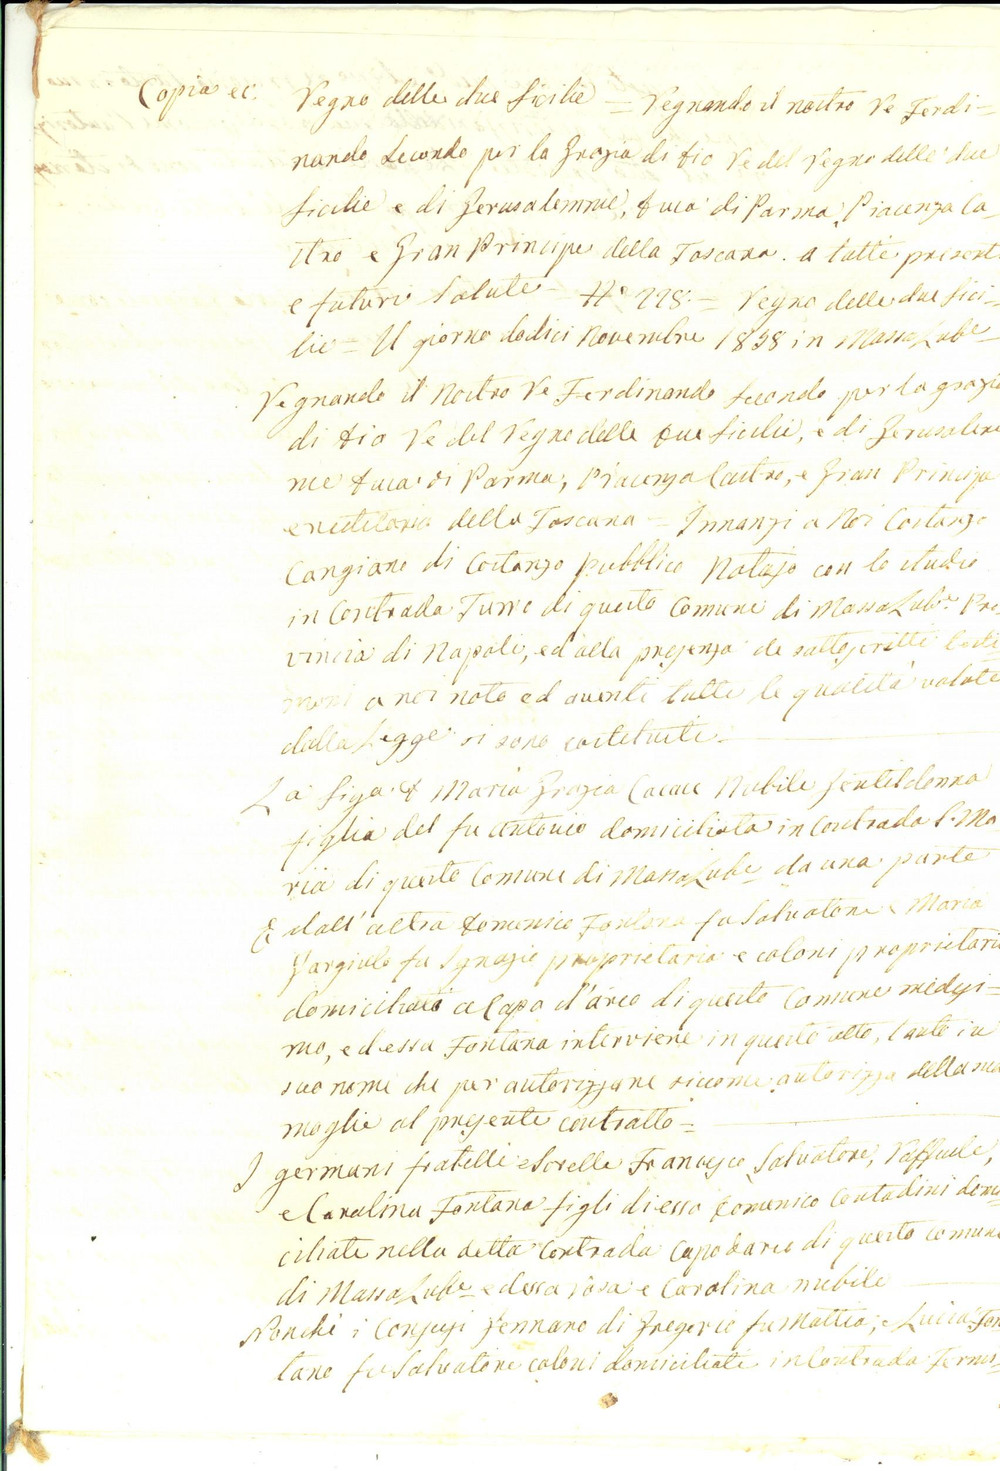 Copia ec. Regno delle due Sicilie = Regnando il nostro Re Ferdi=
nando Secondo per la Grazia di Dio Re del Regno delle due
Sicilie e di Gerusalemme, Duca di Parma, Piacenza Ca_
stro e Gran Principe della Toscana. a tutti presenti
e futuri Salute = N.º 228. = Regno delle due Sici=
lie = Il giorno dodici Novembre 1858 in Massa Lub.e
Regnando il Nostro Re Ferdinando Secondo per la grazia
di Dio Re del Regno delle Due Sicilie, e di Gerusalem
me Duca di Parma, Piacenza Castro, e Gran Principe
ereditario della Toscana = Innanzi a Noi Costanzo
Cangiano di Costanzo Pubblico Notajo con lo studio
in Contrada Turro di questo Comune di Massa Lub.e Pro_
vincia di Napoli, ed alla presenza de sottoscritti testi=
moni a noi noti ed aventi tutte le qualità volute
dalla Legge si sono costituiti =
La Sig.a D. Maria Grazia Cacace Nubile Gentildonna
figlia del fu Antonio domiciliata in Contrada S. Ma
ria di questo Comune di Massa Lub.e da una parte
E dall'altra Domenico Fontana fu Salvatore e Maria
Gargiulo fu Ignazio proprietaria e coloni proprietari
domiciliati a Capo d'arco di questo Comune medesi=
mo, ed esso Fontana interviene in questo atto, tanto in
suo nome che per autorizzare siccome autorizza della sua
moglie al presente contratto =
I germani fratelli e Sorelle Francesco, Salvatore, Raffaele,
e Carolina Fontana figli di esso Domenico Contadini domi=
ciliati nella detta Contrada Capo d'arco di questo comune
di Massa Lub.e e dessa rosa e Carolina nubile
Nonchè i Conjugi Gennaro di Gregorio fu Mattia, e Lucia Fon
tana fu Salvatore coloni domiciliati in Contrada